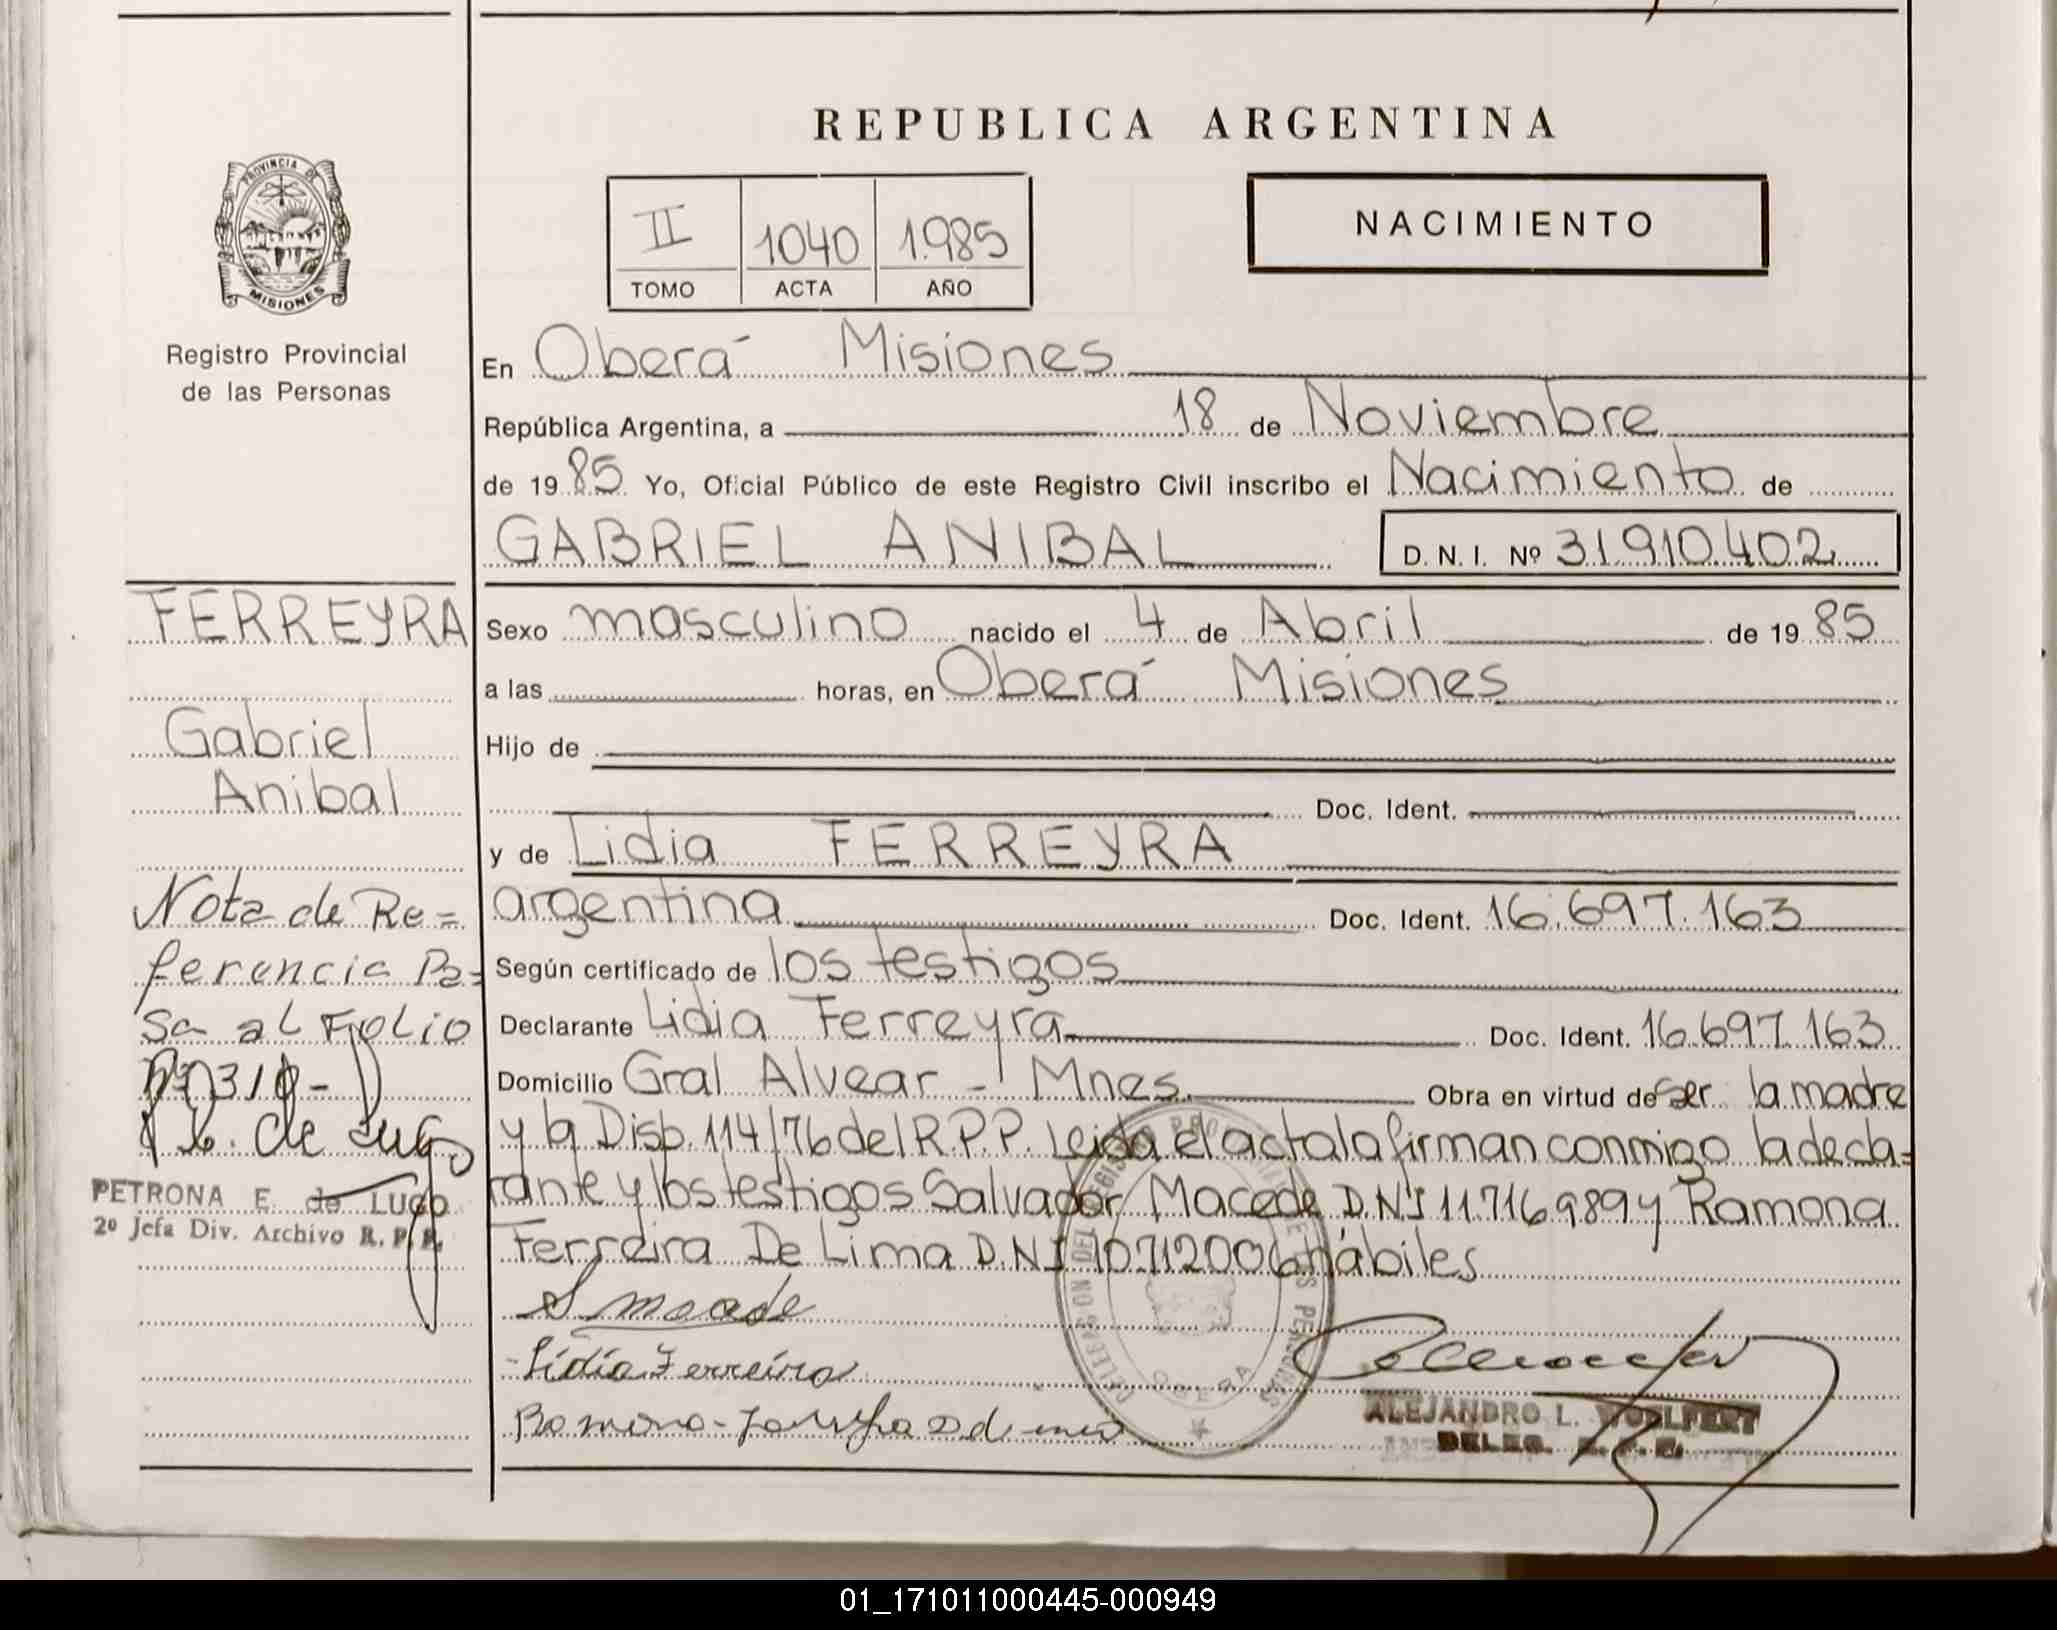 REPUBLICA ARGENTINA
PROVINCIA DE
MISIONES
Registro Provincial
de las Personas
II 1040 1.985
TOMO ACTA AÑO
NACIMIENTO
En Oberá Misiones
República Argentina, a 18 de Noviembre
de 19 85 Yo, Oficial Público de este Registro Civil inscribo el Nacimiento de
GABRIEL ANIBAL D. N. I. Nº 31.910.402
FERREYRA
Gabriel
Anibal
Nota de Re=
ferencia Pa=
sa al Folio
Nº 310-
P. E. de Lugo
PETRONA E. de LUGO
2º Jefa Div. Archivo R. P. P.
Sexo masculino nacido el 4 de Abril de 19 85
a las horas, en Oberá Misiones
Hijo de
Doc. Ident.
y de Lidia FERREYRA
argentina Doc. Ident. 16.697.163
Según certificado de los testigos
Declarante Lidia Ferreyra Doc. Ident. 16.697.163
Domicilio Gral Alvear - Mnes. Obra en virtud de ser la madre
y la Disp. 114/76 del R.P.P. Leida el acta la firman conmigo la decla=
rante y los testigos Salvador Macede D.N.I 11.716.989 y Ramona
Ferreira De Lima D.N.I 10.712006 hábiles
S macede
Lidia Ferreira
Ramona
DELEGASION DEL REGISTRO PROVINCIAL DE LAS PERSONAS
OBERA
ALEJANDRO L. WOLFERT
DELEG. R. P. P.
01_171011000445-000949